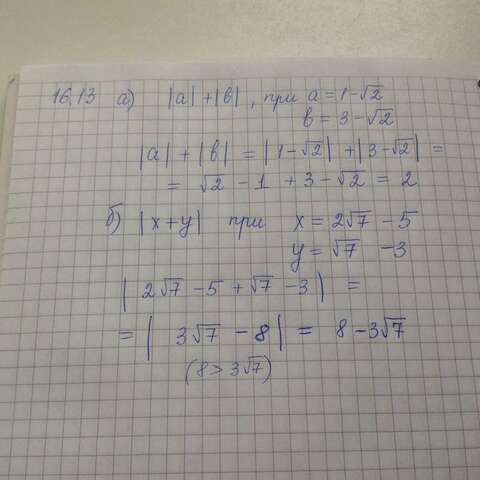 16.13 а) |a| + |b|, при a = 1-√2
b = 3-√2
|a| + |b| = |1-√2| + |3-√2| =
= √2 - 1 + 3 - √2 = 2
б) |x+y| при x = 2√7 - 5
y = √7 - 3
| 2√7 - 5 + √7 - 3 | =
= | 3√7 - 8 | = 8 - 3√7
(8 > 3√7)